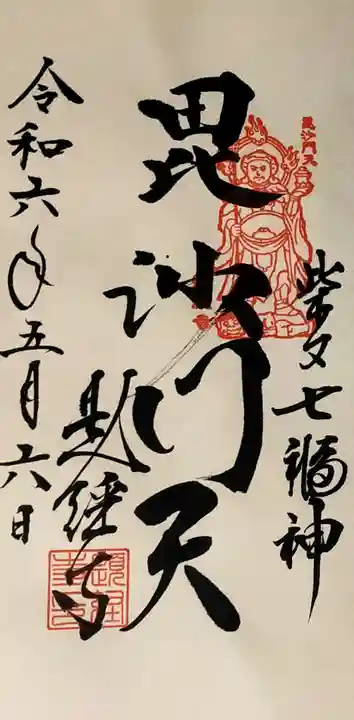 柴又七福神
毘沙門天
毘沙門天
題経寺
令和六年五月六日